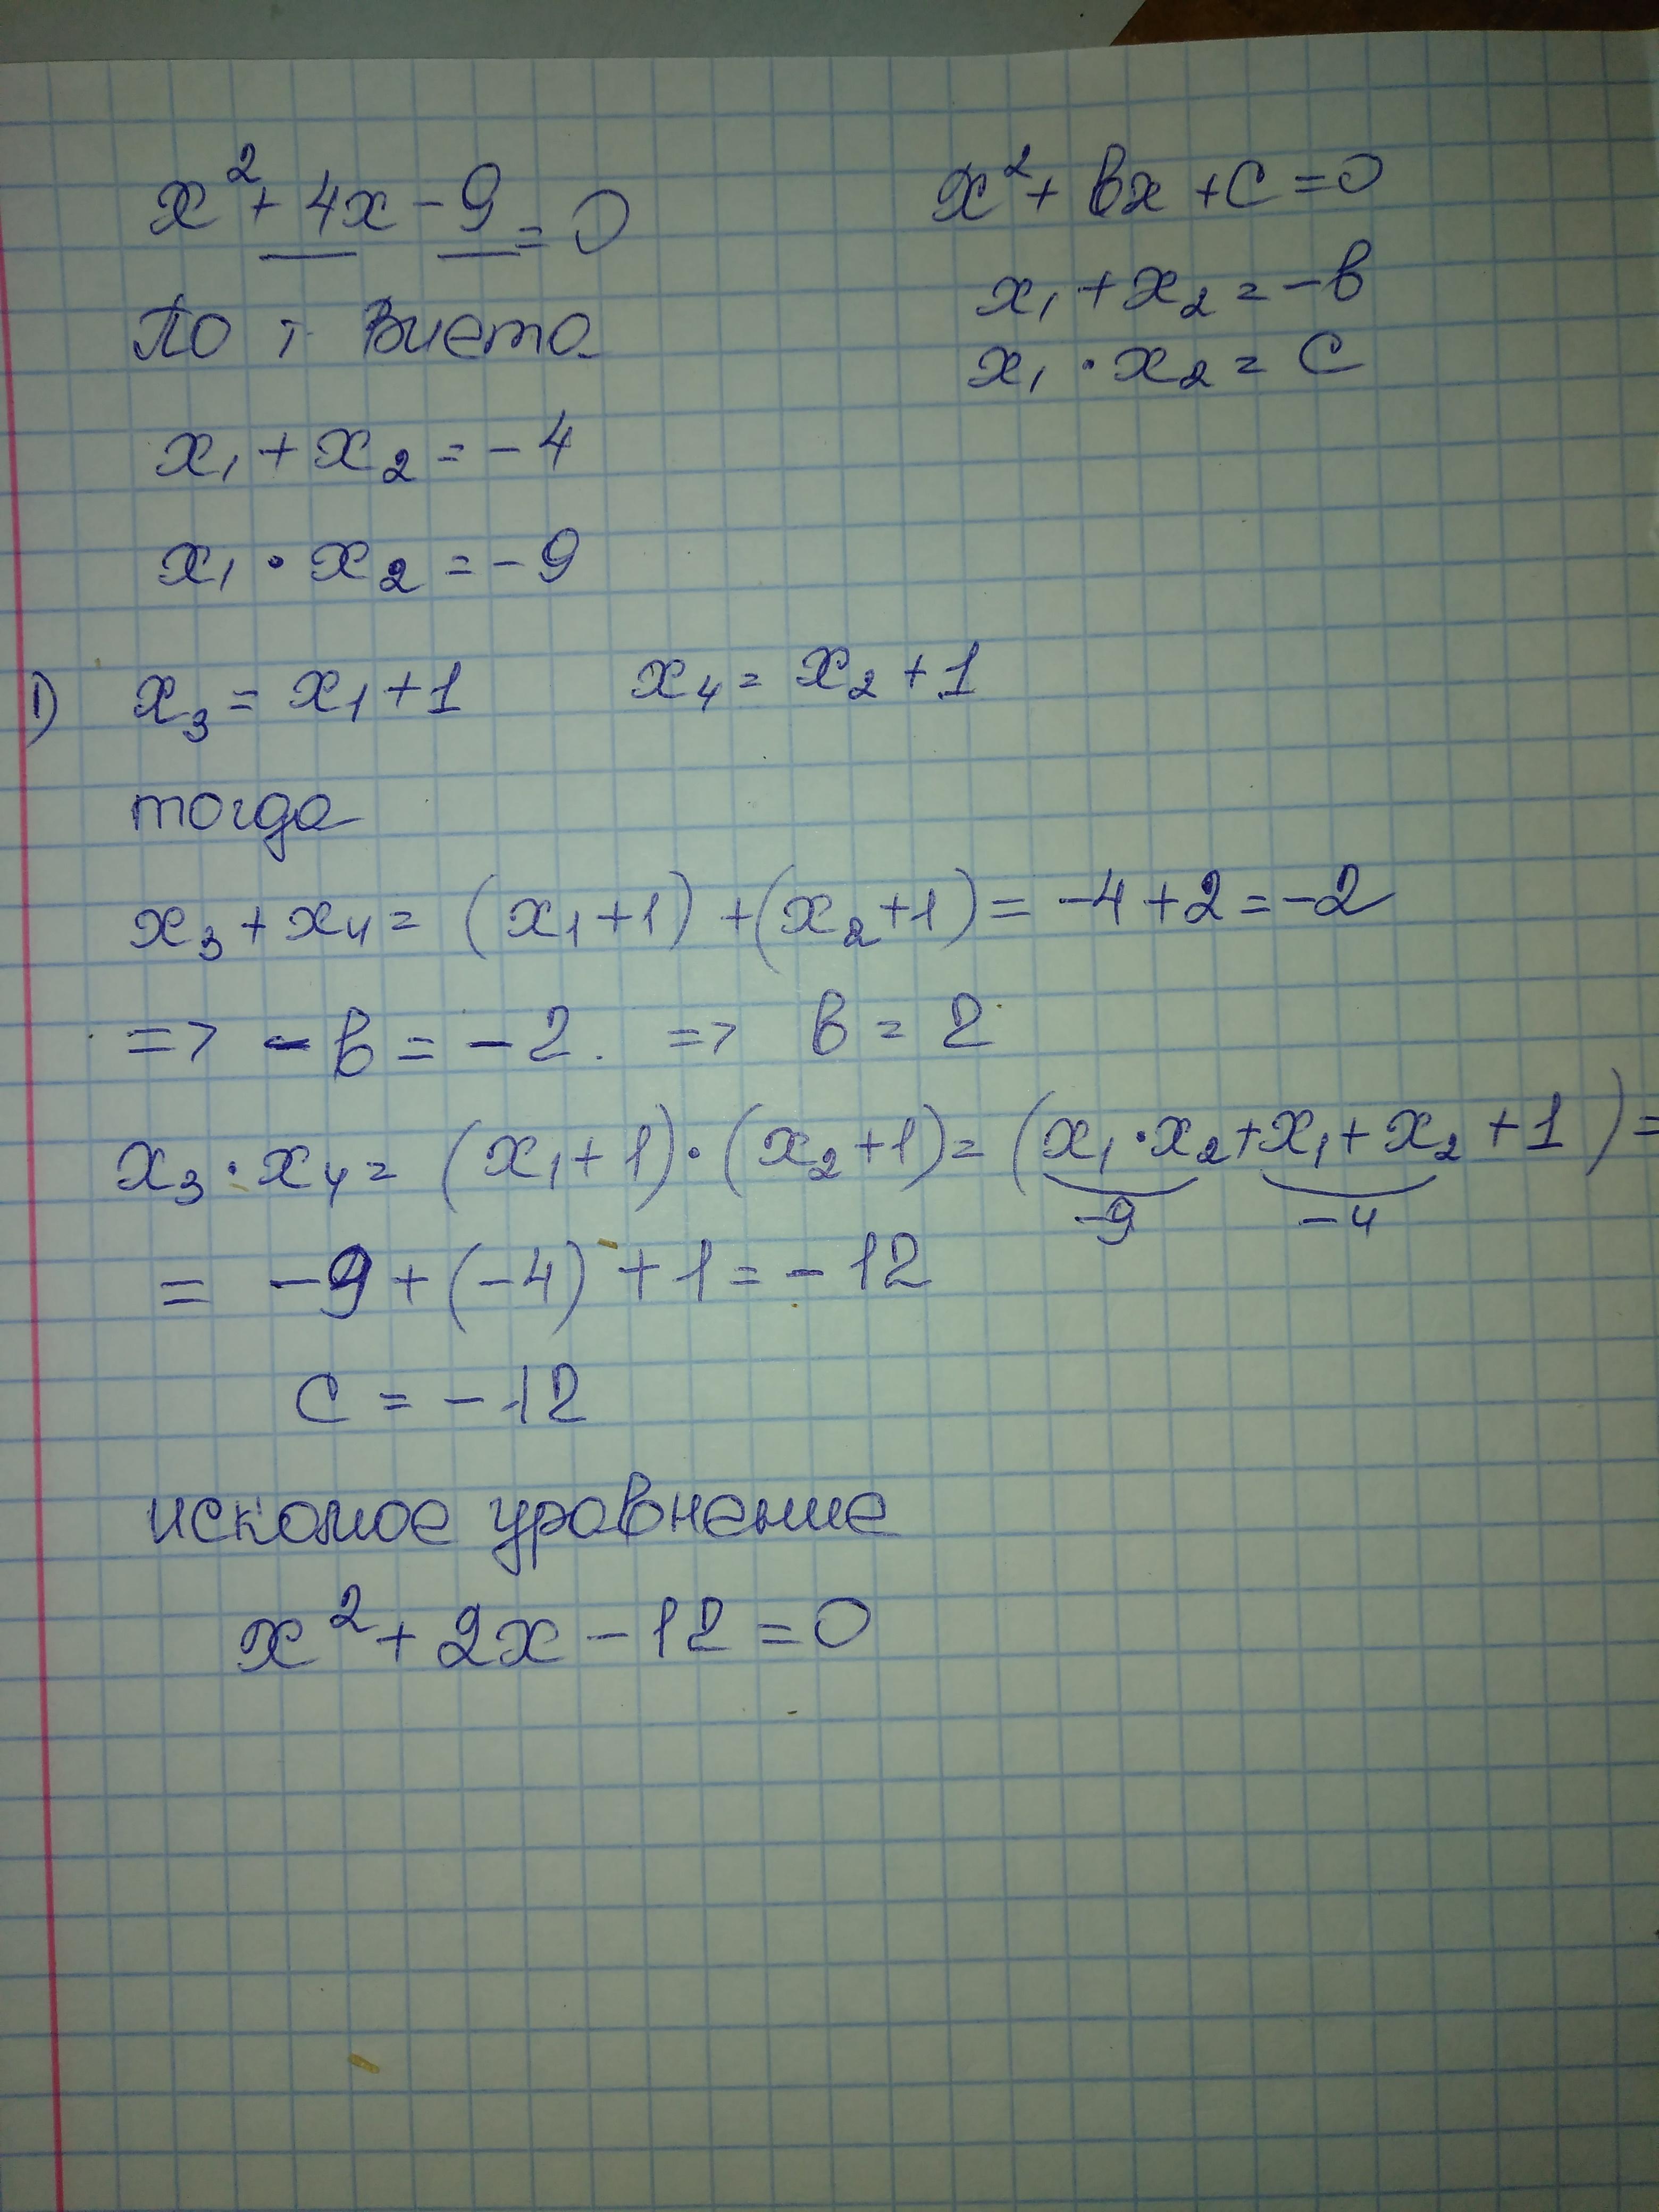 x² + 4x - 9 = 0
x² + вx + c = 0
x₁ + x₂ = -в
x₁ · x₂ = c
По т Виета
x₁ + x₂ = -4
x₁ · x₂ = -9
1) x₃ = x₁ + 1 x₄ = x₂ + 1
тогда
x₃ + x₄ = (x₁ + 1) + (x₂ + 1) = -4 + 2 = -2
=> -в = -2. => в = 2
x₃ · x₄ = (x₁ + 1) · (x₂ + 1) = (x₁ · x₂ + x₁ + x₂ + 1) =
-9 -4
= -9 + (-4) + 1 = -12
c = -12
искомое уравнение
x² + 2x - 12 = 0